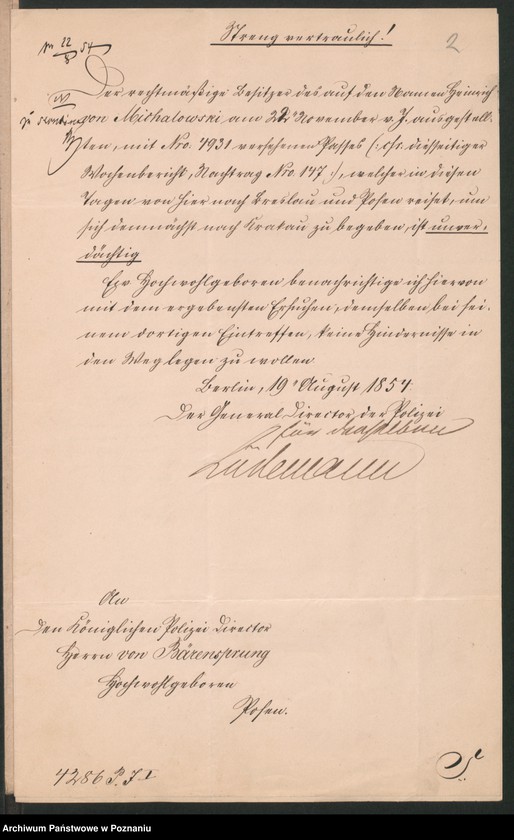 Streng vertraulich!
2
22/8 54
Der rechtmäßige Besitzer des auf den Namen Heinrich
von Michalowski am 22t November v. J. ausgestell-
ten, mit Nro. 4931 versehenen Passes (: cfr. diesseitiger
Wochenbericht, Nachtrag Nro 147 :), welcher in diesen
Tagen von hier nach Breslau und Posen reiset, um
sich demnächst nach Krakau zu begeben, ist unver-
dächtig
Ew Hochwohlgeboren benachrichtige ich hiervon
mit dem ergebensten Ersuchen, demselben bei sei-
nem dortigen Eintreffen, keine Hindernisse in
den Weg legen zu wollen
Berlin, 19t August 1854.
Der General Director der Polizei
für denselben
Lüdemann
An
den Königlichen Polizei Director
Herrn von Bärensprung
Hochwohlgeboren
Posen.
4286 P. J I
Archiwum Państwowe w Poznaniu